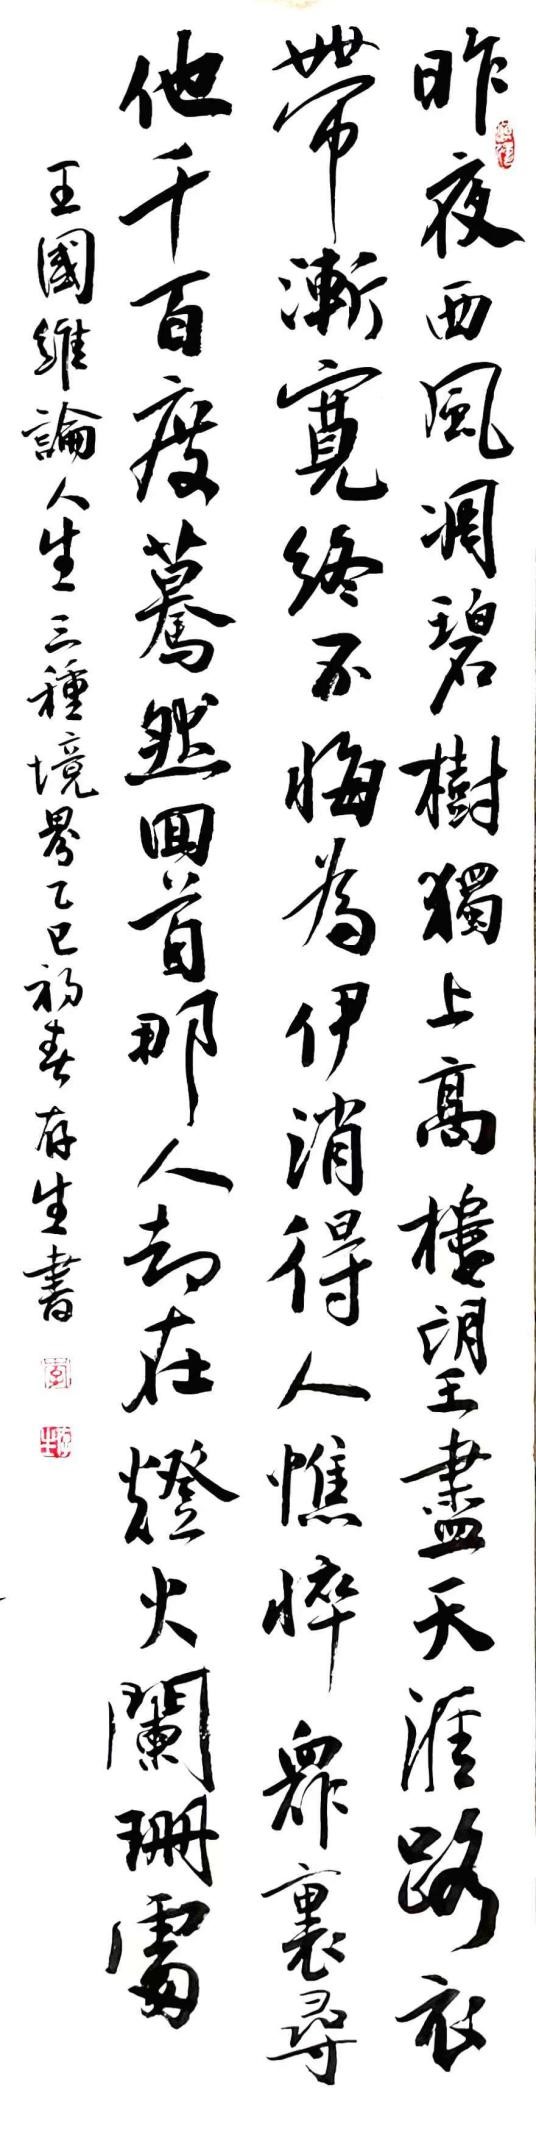 昨夜西風凋碧樹獨上高樓望盡天涯路衣
帶漸寬終不悔為伊消得人憔悴衆裏尋
他千百度驀然回首那人却在燈火闌珊處
王國維論人生三種境界乙巳初春存生書